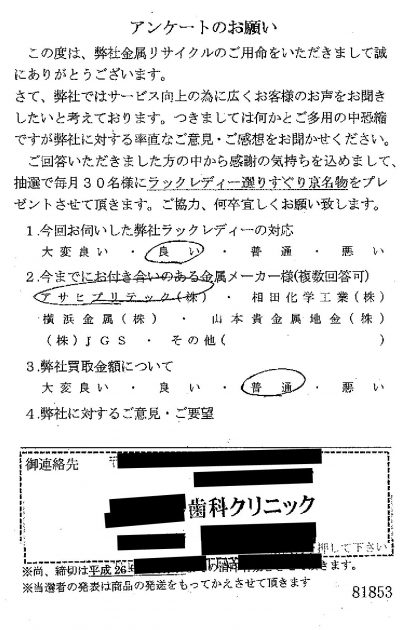 アンケートのお願い
この度は、弊社金属リサイクルのご用命をいただきまして誠
にありがとうございます。
さて、弊社ではサービス向上の為に広くお客様のお声をお聞き
したいと考えております。つきましては何かとご多用の中恐縮
ですが弊社に対する率直なご意見・ご感想をお聞かせください。
ご回答いただきました方の中から感謝の気持ちを込めまして、
抽選で毎月30名様にラックレディー選りすぐり京名物をプレ
ゼントさせて頂きます。ご協力、何卒宜しくお願い致します。
1.今回お伺いした弊社ラックレディーの対応
大変良い ・ 良い ・ 普通 ・ 悪い
2.今までにお付き合いのある金属メーカー様(複数回答可)
アサヒプリテック(株) ・ 相田化学工業(株)
横浜金属(株) ・ 山本貴金属地金(株)
(株)JGS ・ その他( )
3.弊社買取金額について
大変良い ・ 良い ・ 普通 ・ 悪い
4.弊社に対するご意見・ご要望
御連絡先
歯科クリニック
押して下さい
※尚、締切は平成26 きます。
※当選者の発表は商品の発送をもってかえさせて頂きます
81853